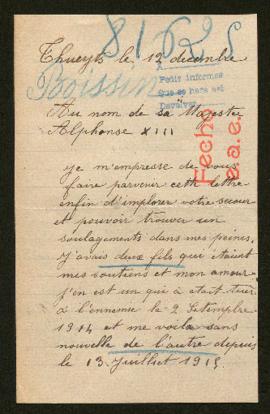 81625
Thueyts le 12 décembre
Boissin
Pedir informes
que se hara asi
Au nom de sa Majeste
Alphonse XIII
Fecho
a.a.e.
je m'empresse de vous
faire parvenir cette lettre
enfin d'implorer votre secour
et pouvoir trouver un
soulagements dans mes peines.
J'avais deux fils qui étaient
mes soutiens et mon amour.
j'en est un qui a était tuer
à l'ennemie le 2 Setempbre
1914 et me voila sans
nouvelle de l'autre depuis
le 13 Juillet 1915